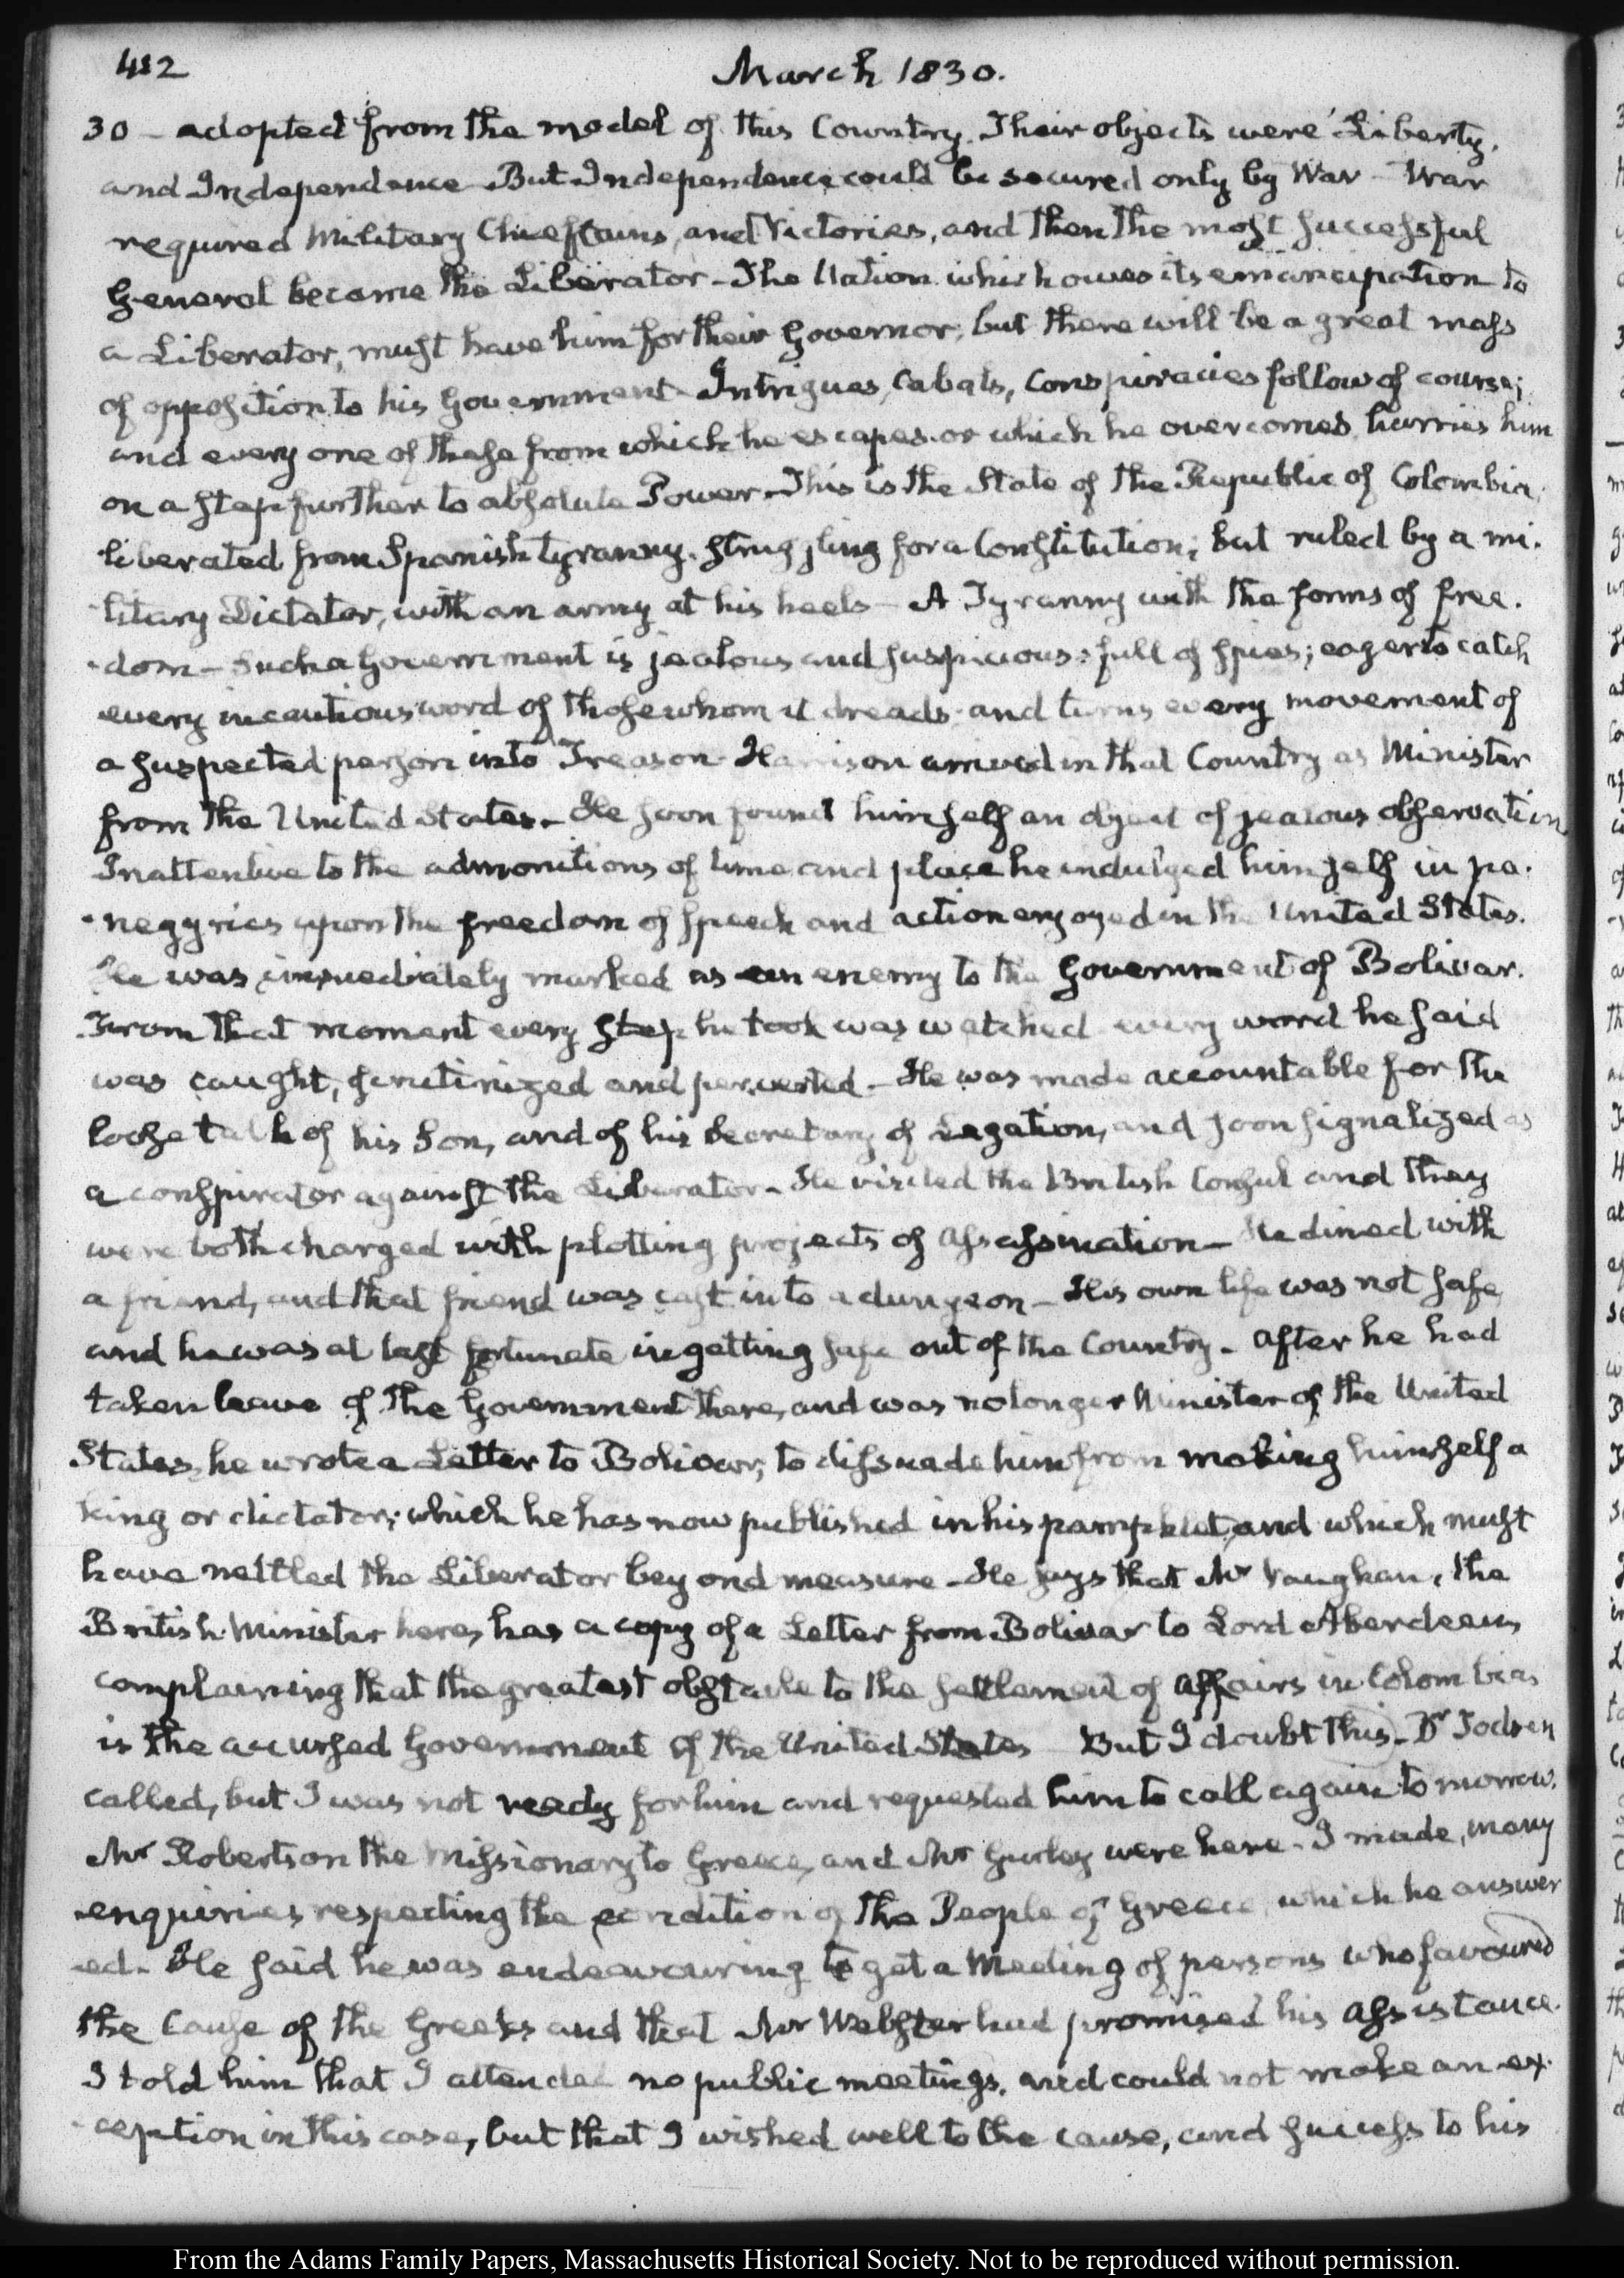 412
March 1830.
30 - adopted from the model of this Country. Their objects were Liberty,
and Independence - But Independence could be secured only by War - War
required Military Chieftains, and Victories, and then the most successful
General became the Liberator - The Nation which owes its emancipation to
a Liberator, must have him for their Governor; but there will be a great mass
of opposition to his Government - Intrigues, Cabals, Conspiracies follow of course;
and every one of these from which he escapes or which he overcomes hurries him
on a step further to absolute Power - This is the State of the Republic of Colombia,
liberated from Spanish tyranny. struggling for a Constitution; but ruled by a mi-
litary Dictator, with an army at his heels - A Tyranny with the forms of free-
-dom - Such a Government is jealous and suspicious: full of spies; eager to catch
every incautious word of those whom it dreads and turns every movement of
a suspected person into Treason. Harrison arrived in that Country as Minister
from the United States. - He soon found himself an object of jealous observation
Inattentive to the admonitions of time and place he indulged himself in pa-
-negyrics upon the freedom of speech and action enjoyed in the United States.
He was immediately marked as an enemy to the Government of Bolivar.
From that moment every step he took was watched every word he said
was caught, scrutinized and perverted - He was made accountable for the
loose talk of his Son, and of his Secretary of Legation, and soon signalized as
a conspirator against the Liberator - He visited the British Consul and they
were both charged with plotting projects of assassination - He dined with
a friend, and that friend was cast into a dungeon - His own life was not safe,
and he was at last fortunate in getting safe out of the Country. - After he had
taken leave of the Government there, and was no longer Minister of the United
States, he wrote a Letter to Bolivar, to dissuade him from making himself a
king or dictator; which he has now published in his pamphlet, and which must
have nettled the Liberator beyond measure - He says that Mr Vaughan, the
British Minister here, has a copy of a Letter from Bolivar to Lord Aberdeen,
complaining that the greatest obstacle to the settlement of affairs in Colombia,
is the accursed Government of the United States But I doubt this - Dr
called, but I was not ready for him and requested him to call again to morrow.
Mr Robertson the Missionary to Greece, and Mr Gurley were here - I made, many
enquiries respecting the condition of the People of Greece, which he answer
-ed - He said he was endeavouring to get a Meeting of persons who favoured
the Cause of the Greeks and that Mr Webster had promised his assistance.
I told him that I attended no public meetings, and could not make an ex-
-ception in this case, but that I wished well to the cause, and success to his
From the Adams Family Papers, Massachusetts Historical Society. Not to be reproduced without permission.